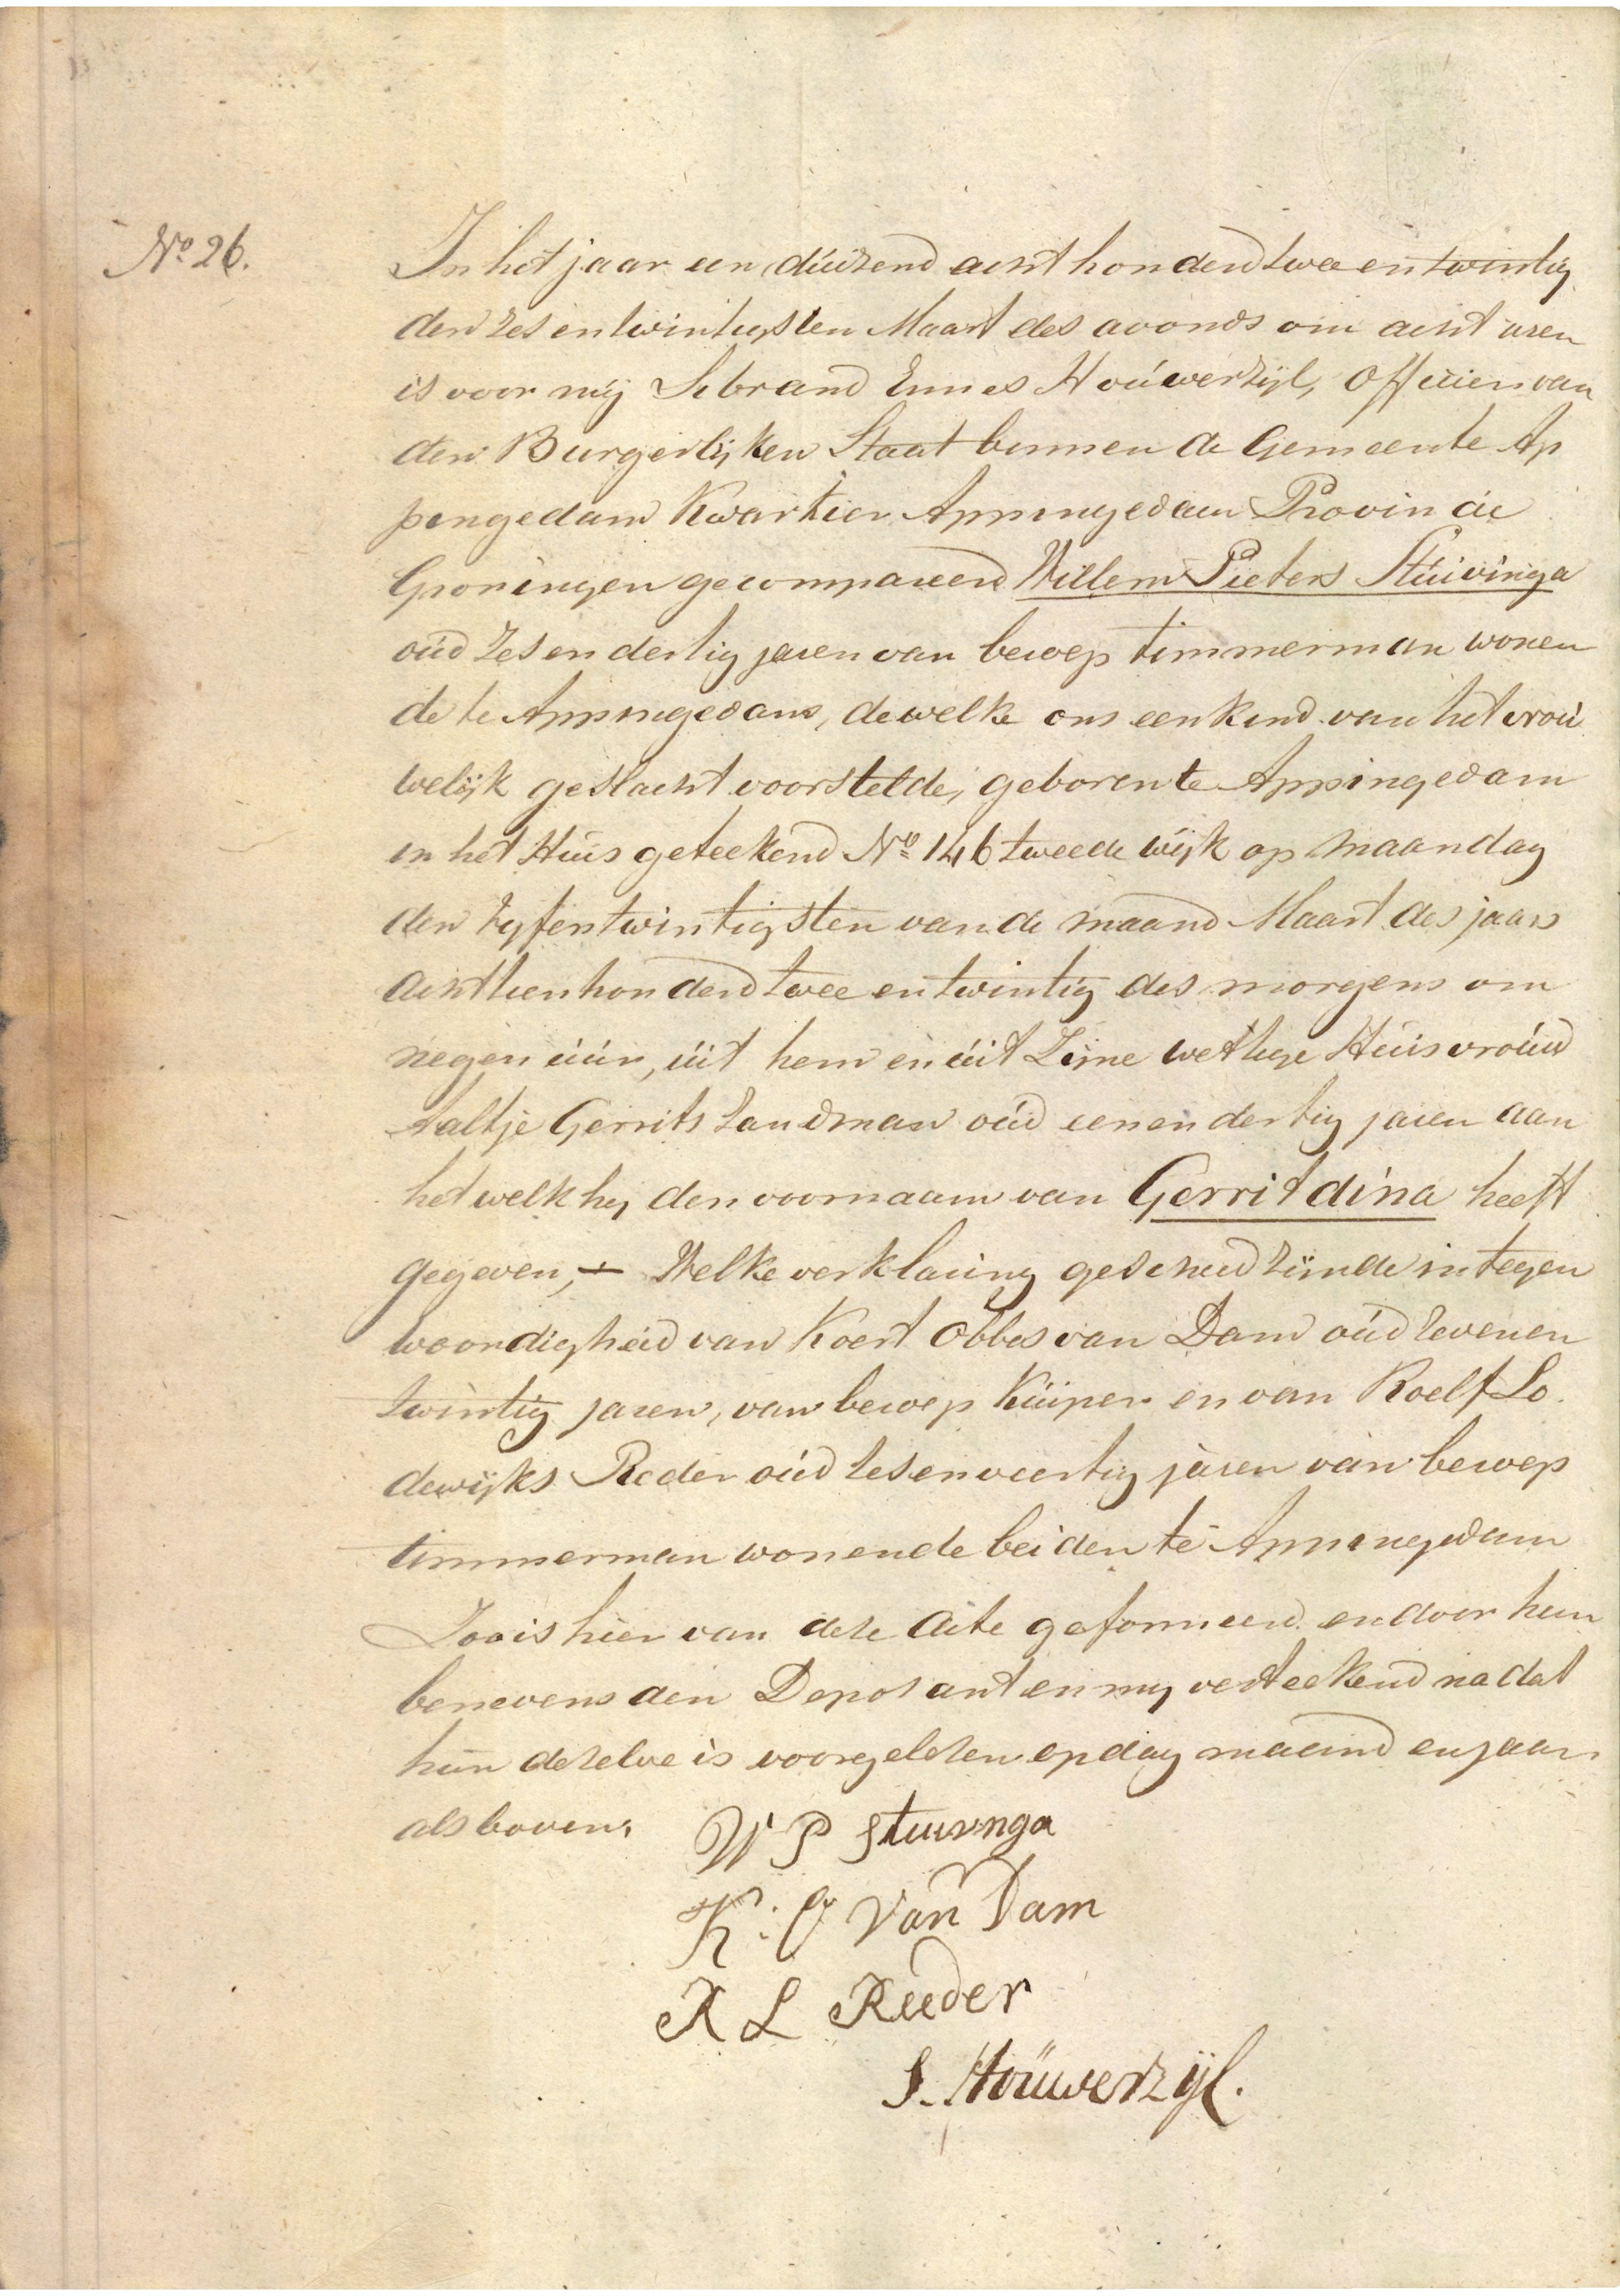 No 26.
In het jaar een duizend acht honderd twee en twintig
den zes en twintigsten Maart des avonds om acht uren
is voor mij Sebrand Ennes Houwerzijl, Officier van
den Burgerlijken Staat binnen de Gemeente Ap
pengedam Kwartier Appingedam Provincie
Groningen gecompareerd Willem Pieters Stuivinga
oud zes en dertig jaren van beroep timmerman wonen
de te Appingedam, dewelke ons een kind van het vrou
welijk geslacht voorstelde, geboren te Appingedam
in het Huis geteekend No 146 tweede wijk op maandag
den vyfentwintigsten van de maand Maart des jaars
achttienhonderd twee en twintig des morgens om
negen uur, uit hem en uit Zijne wettige Huisvrouw
Aaltje Gerrits Landman oud een en dertig jaren aan
het welk hij den voornaam van Gerritdina heeft
gegeven, — Welke verklaring geschied zijnde in tegen
woordigheid van Koert Obbes van Dam oud zeven en
twintig jaren, van beroep Kuiper en van Roelf Lo
dewijks Reder oud zes en veertig jaren van beroep
timmerman wonende beiden te Appingedam
Zoo is hier van deze Acte geformeerd en door hun
benevens den Deposant en mij verteekend na dat
hun dezelve is voorgelezen op dag maand en jaar
als boven.
W P Stuivinga
K: O Van Dam
R L Reeder
S. Houwerzijl.